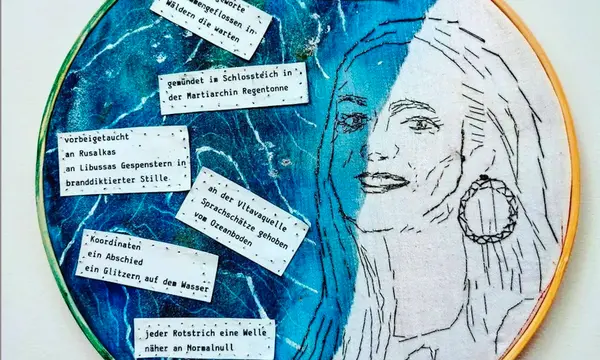 zusammengeflossen in
Wäldern die warten
gemündet im Schlossteich in
der Martiarchin Regentonne
vorbeigetaucht
an Rusalkas
an Libussas Gespenstern in
branddiktierter Stille
an der Vltavaquelle
Sprachschätze gehoben
vom Ozeanboden
Koordinaten
ein Abschied
ein Glitzern auf dem Wasser
jeder Rotstrich eine Welle
näher an Normalnull